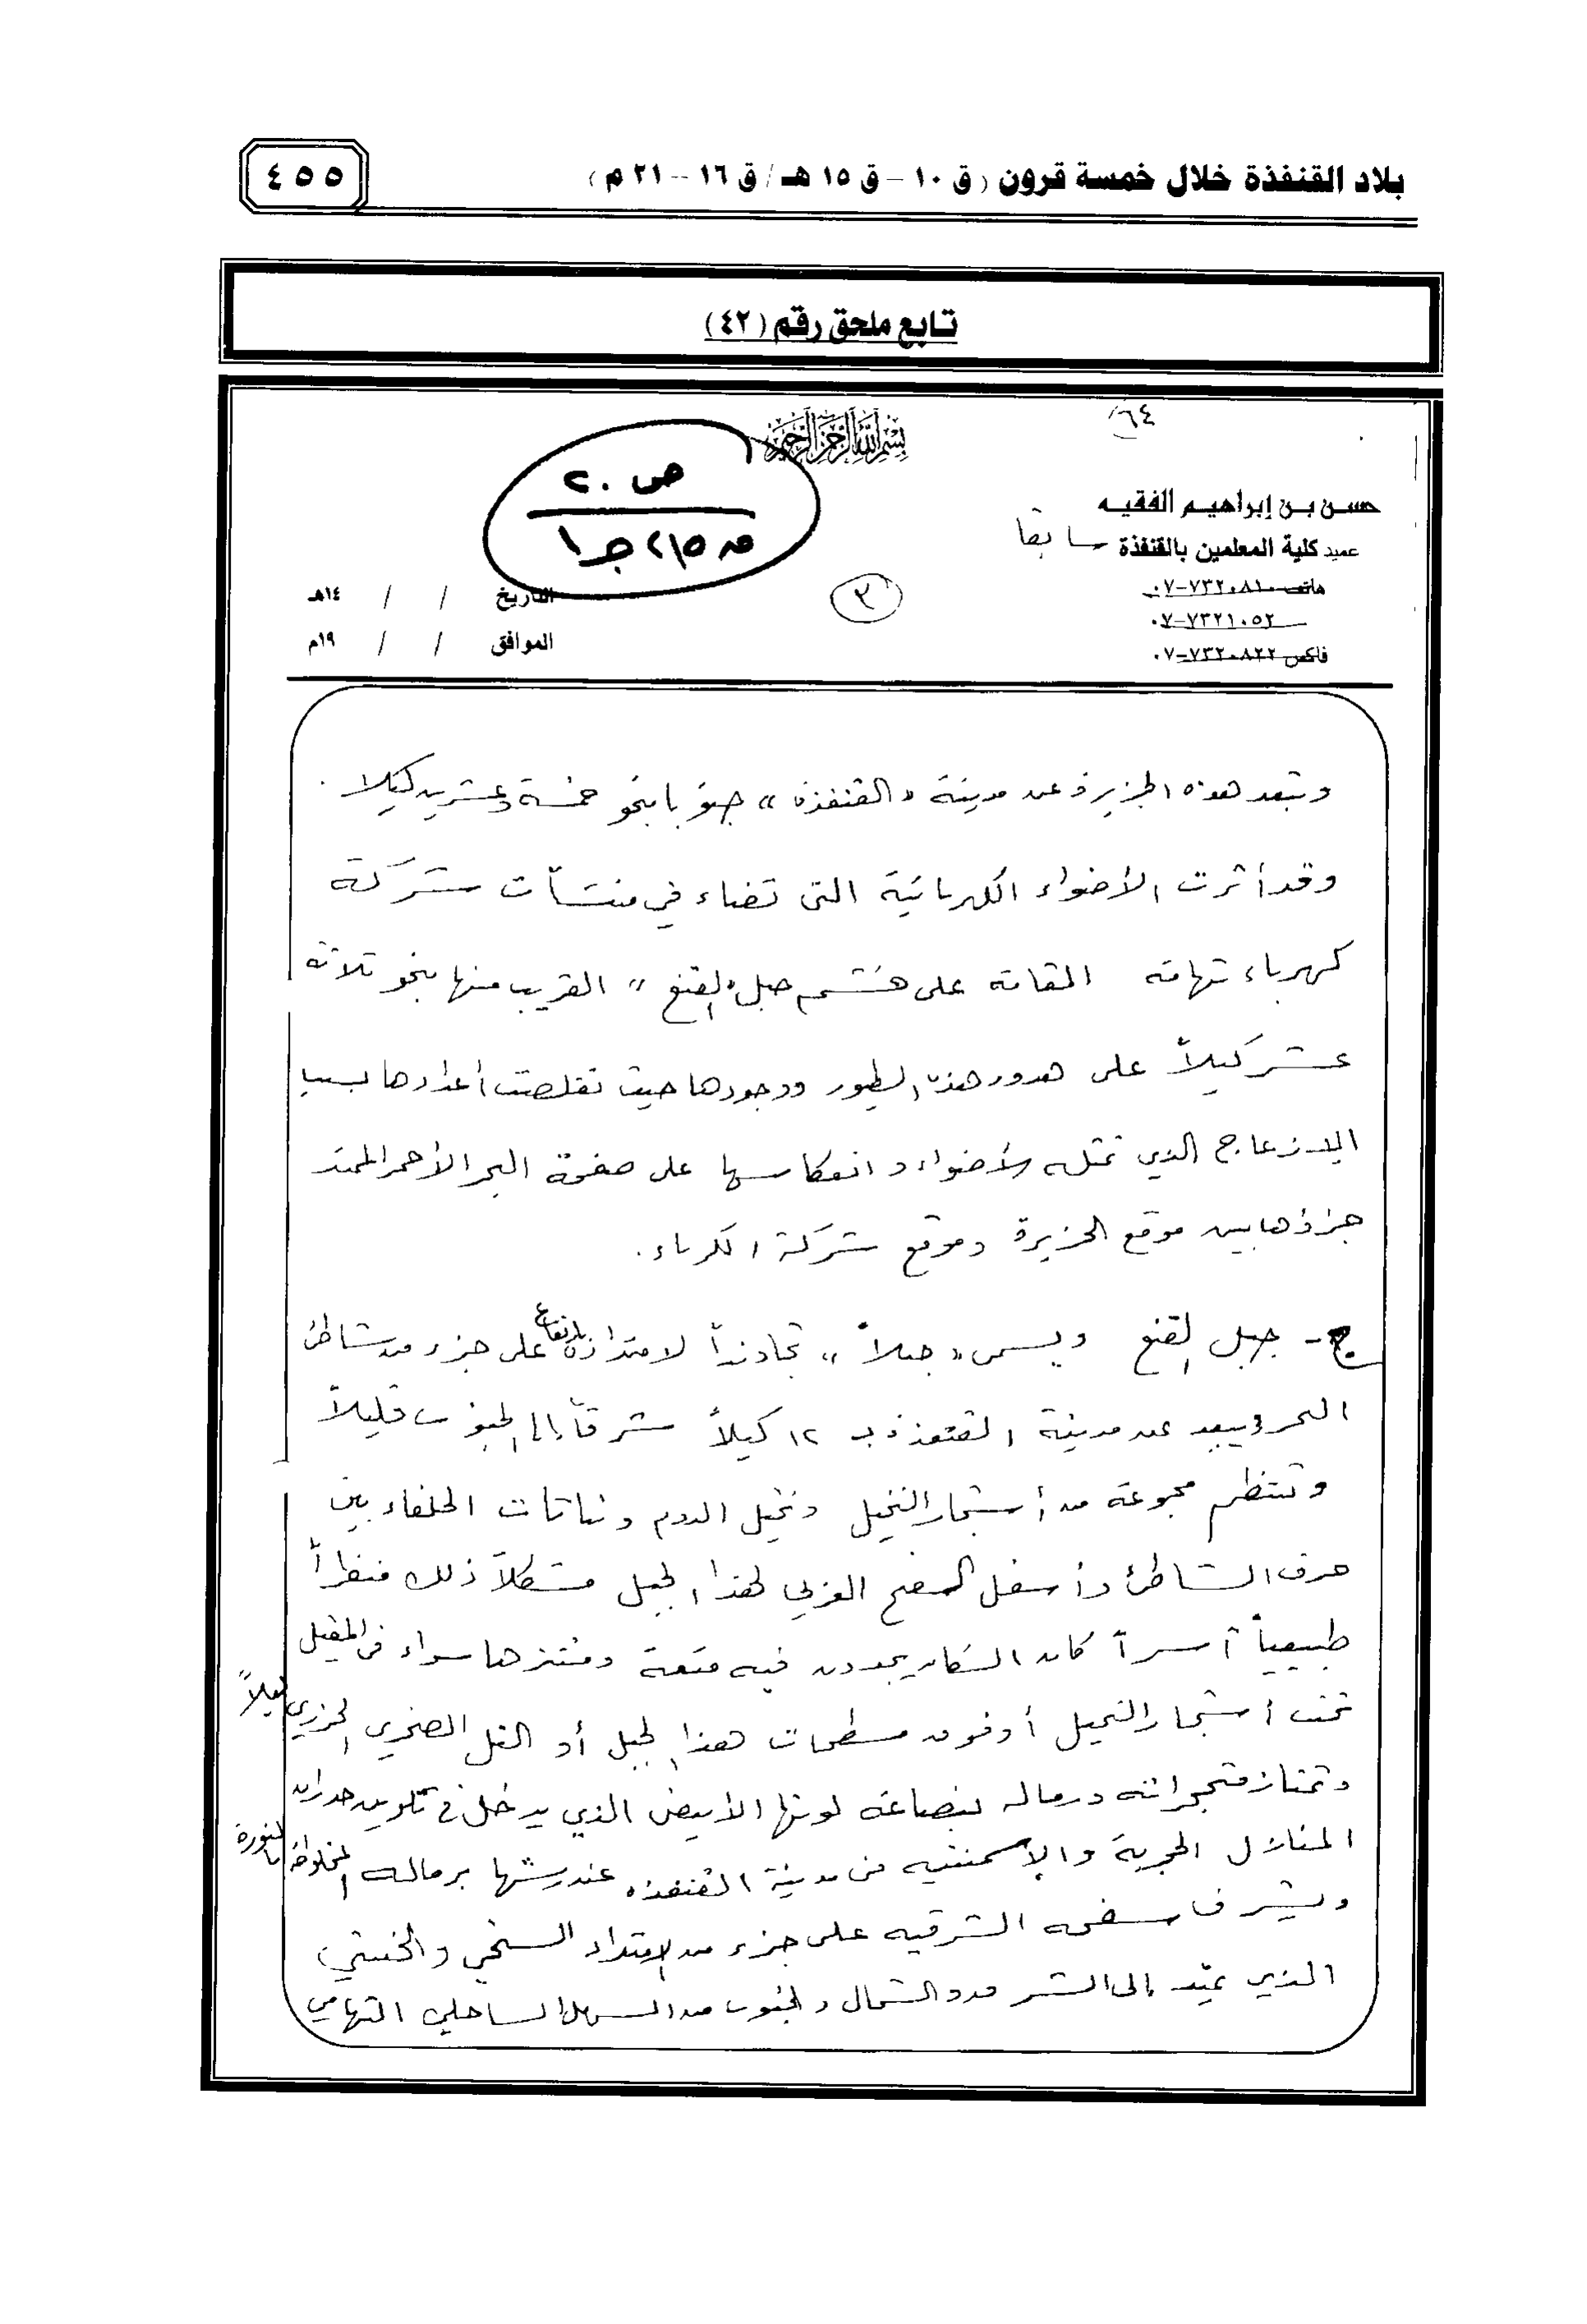 بلاد القنفذة خلال خمسة قرون (ق ١٠ - ق ١٥ هـ / ق ١٦ -- ٢١ م)
٤٥٥
تابع ملحق رقم (٤٢)
٦٤
بسم الله الرحمن الرحيم
ص ٢٠
حسن بن إبراهيم الفقيه
عميد كلية المعلمين بالقنفذة سابقا
هاتف ٧٣٢٠٨١٠-٠٧
٧٣٢١٠٥٢-٠٧
فاكس ٧٣٢٠٨٢٢-٠٧
٣
التاريخ / / ١٤هـ
الموافق / / ١٩م
وتبعد هذه الجزيرة عن مدينة «القنفذة» جنوبا بنحو خمسة وعشرين كيلا .
وقد أثرت الأضواء الكهربائية التي تضاء في منشآت شركة
كهرباء تهامة المقامة على هشيم جبل «القنع» القريب منها بنحو ثلاثة
عشر كيلاً على هدور هذه الطيور ووجودها حيث تقلصت أعدادها بسبب
الإزعاج الذي تمثله الأضواء وانعكاسها على صفحة البحر الأحمر الممتد
جزؤها بين موقع الجزيرة وموقع شركة الكهرباء.
ج - جبل القنع ويسمى «جبلاً» تجاوزاً لامتداده بارتفاع على جزء من شاطئ
البحر ويبعد عن مدينة القنفذة بـ ١٢ كيلاً شرقاً إلى الجنوب قليلاً
وتنتظم مجموعة من أشجار النخيل ونخيل الدوم ونباتات الحلفاء بين
حرف الشاطئ وأسفل السفح الغربي لهذا الجبل مشكلاً ذلك منظراً
طبيعياً آسراً كان السكان يجدون فيه متعة ومنتزها سواء في المقيل
تحت أشجار النخيل أو فوق مسطحات هذا الجبل أو التل الصخري الجزري ليلاً
وتمتاز متحجراته ورماله بنصاعة لونها الأبيض الذي يدخل في تلوين جدران
المنازل الحجرية والإسمنتية في مدينة القنفذة عند رشها برماله المخلوطة بالنورة
ويشرف سفحه الشرقية على جزء من الامتداد السبخي والخبتي
الذي يمتد إلى الشرق والشمال والجنوب من السهل الساحلي التهامي